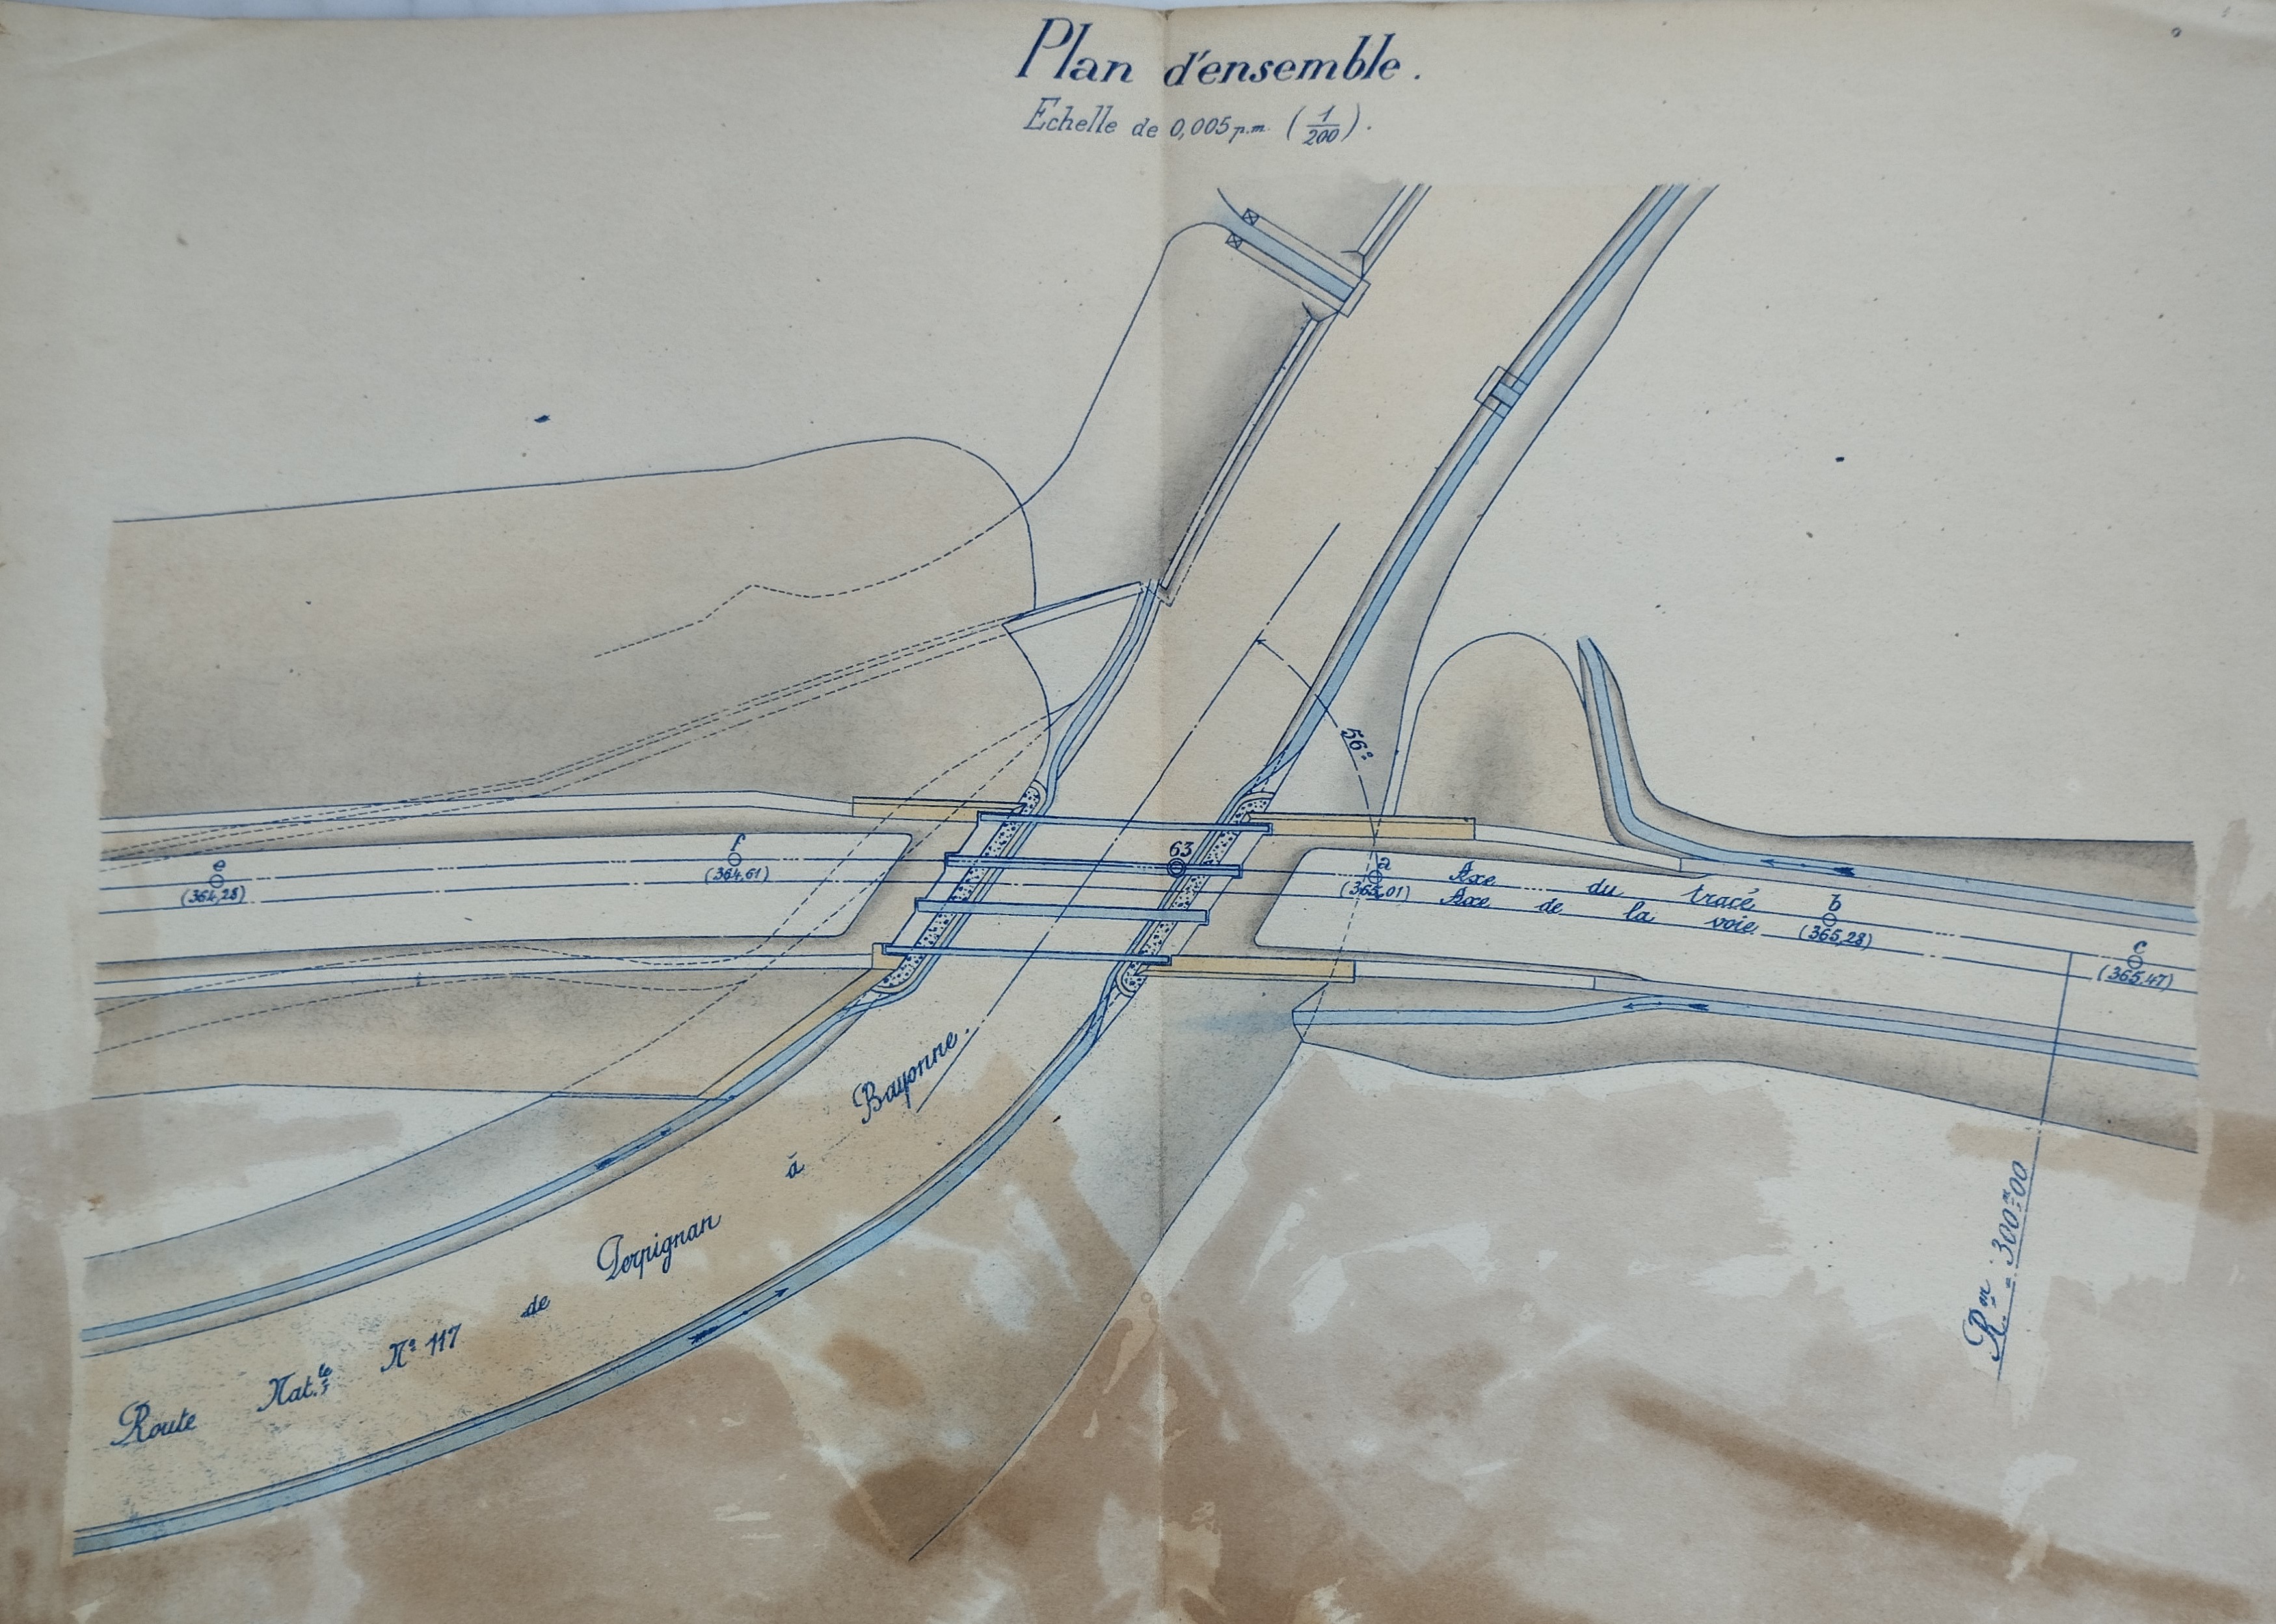 Plan d'ensemble.
Echelle de 0,005 p.m. (1/200).
56°
63
e
(364,28)
f
(364,61)
a
(365,01)
Axe du tracé
Axe de la voie
b
(365,28)
c
(365,47)
Route Nat.le N° 117 de Perpignan à Bayonne.
R.on = 300m00